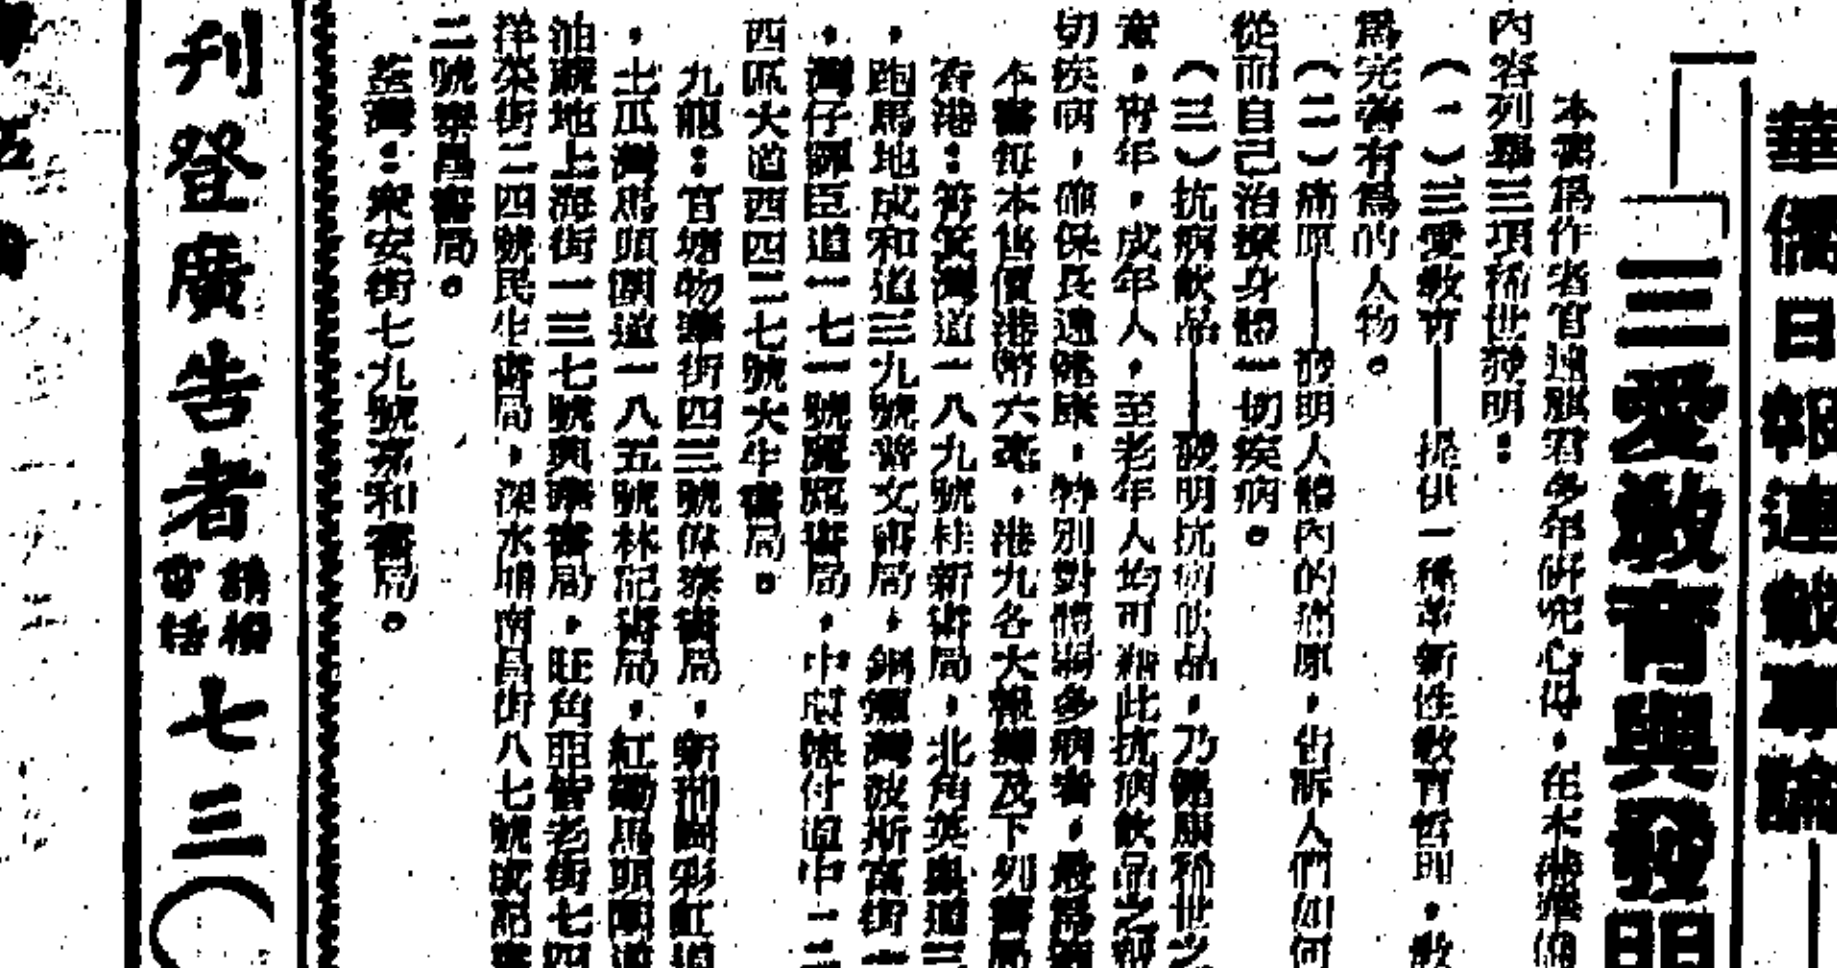 華僑日報連載專論
「三愛教育與發明
本書為作者官遠騏君多年研究心得,在本港華僑
內容列舉三項稀世發明:
(一)三愛教育——提供一種革新性教育哲理,教
為完善有為的人物。
(二)病原——發明人體內的病原,告訴人們如何
從而自己治療身體一切疾病。
(三)抗病飲品——發明抗病飲品,乃健康稀世之
,青年,成年人,至老年人均可藉此抗病飲品之
切疾病,確保長遠健康,特別對體弱多病者,最為
本書每本售價港幣六毫,港九各大報攤及下列書局
香港:筲箕灣道一八九號桂新書局,北角英皇道三
,跑馬地成和道三九號普文書局,銅鑼灣波斯富街
,灣仔譚臣道一七一號 書局,中 中二
西區大道西四二七號大生書局。
九龍:官塘物華街四三號偉泰書局,新蒲崗彩虹道
,土瓜灣馬頭圍道一八五號林記書局,紅磡馬頭圍道
油麻地上海街一三七號興華書局,旺角亞皆老街七四
洋菜街二四號民生書局,深水埔南昌街八七號成記書
二號樂昌書局。
荃灣:眾安街七九號嘉和書局。
刊登廣告者請撥電話七三〇